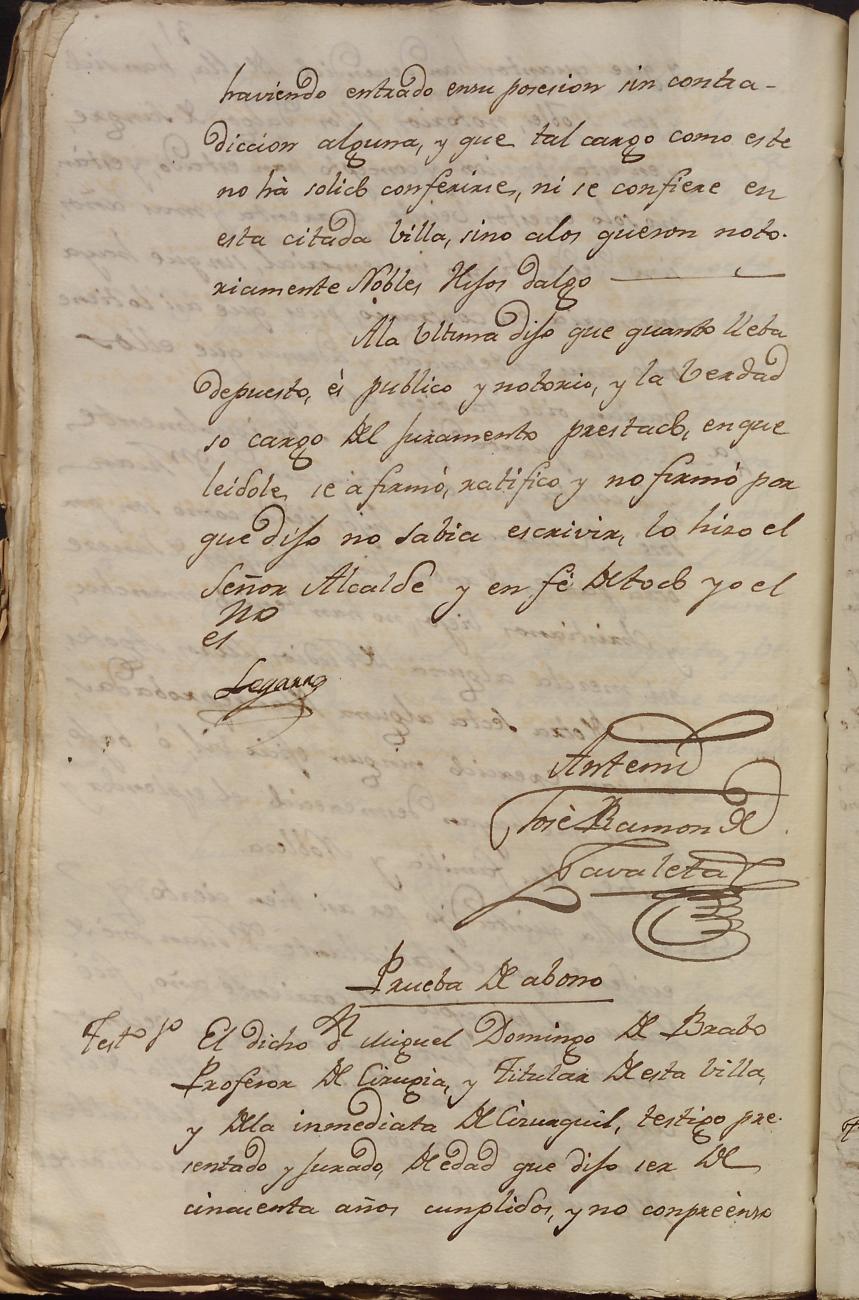 haviendo entrado ensu posesion sin contra-
diccion alguna, y que tal cargo como este
no há solido conferirse, ni se confiere en
esta citada Villa, sino alos queson noto-
riamente Nobles Hijos dalgo
Ala Ultima dijo que quanto lleba
depuesto, és publico y notorio, y la Verdad
so cargo del juramento prestado, enque
leidole, se afirmó, ratifico, y no firmó por
que dijo no sabia escrivir, lo hizo el
Señor Alcalde y en fé detodo yo el
no
es
Legarra
Antemi
Josè Ramon de
Zavaleta
Prueba de abono
Testo 1o El dicho dn Miguel Domingo de Brabo
Profesor de Cirugia, y Titular de esta Villa,
y dela inmediata de Cirurquil, testigo pre-
sentado y jurado, de edad que dijo ser de
cinquenta años cumplidos, y no conpreènso